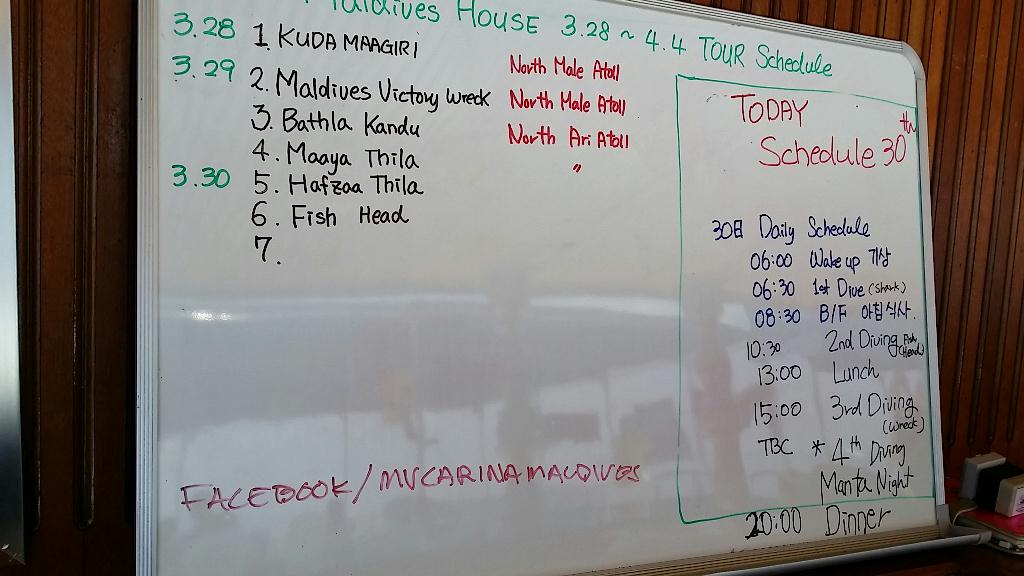 Maldives HOUSE 3.28 ~ 4.4 TOUR Schedule
3.28 1. KUDA MAAGIRI North Male Atoll
3.29 2. Maldives Victory Wreck North Male Atoll
3. Bathla Kandu North Ari Atoll
4. Maaya Thila "
3.30 5. Hafzaa Thila
6. Fish Head
7.
FACEBOOK/MVCARINAMALDIVES
TODAY
Schedule 30th
30日 Daily Schedule
06:00 Wake up 기상
06:30 1st Dive (Shark)
08:30 B/F 아침식사.
10:30 2nd Diving (Fish Head)
13:00 Lunch
15:00 3rd Diving (Wreck)
TBC * 4th Diving
Manta Night
20:00 Dinner